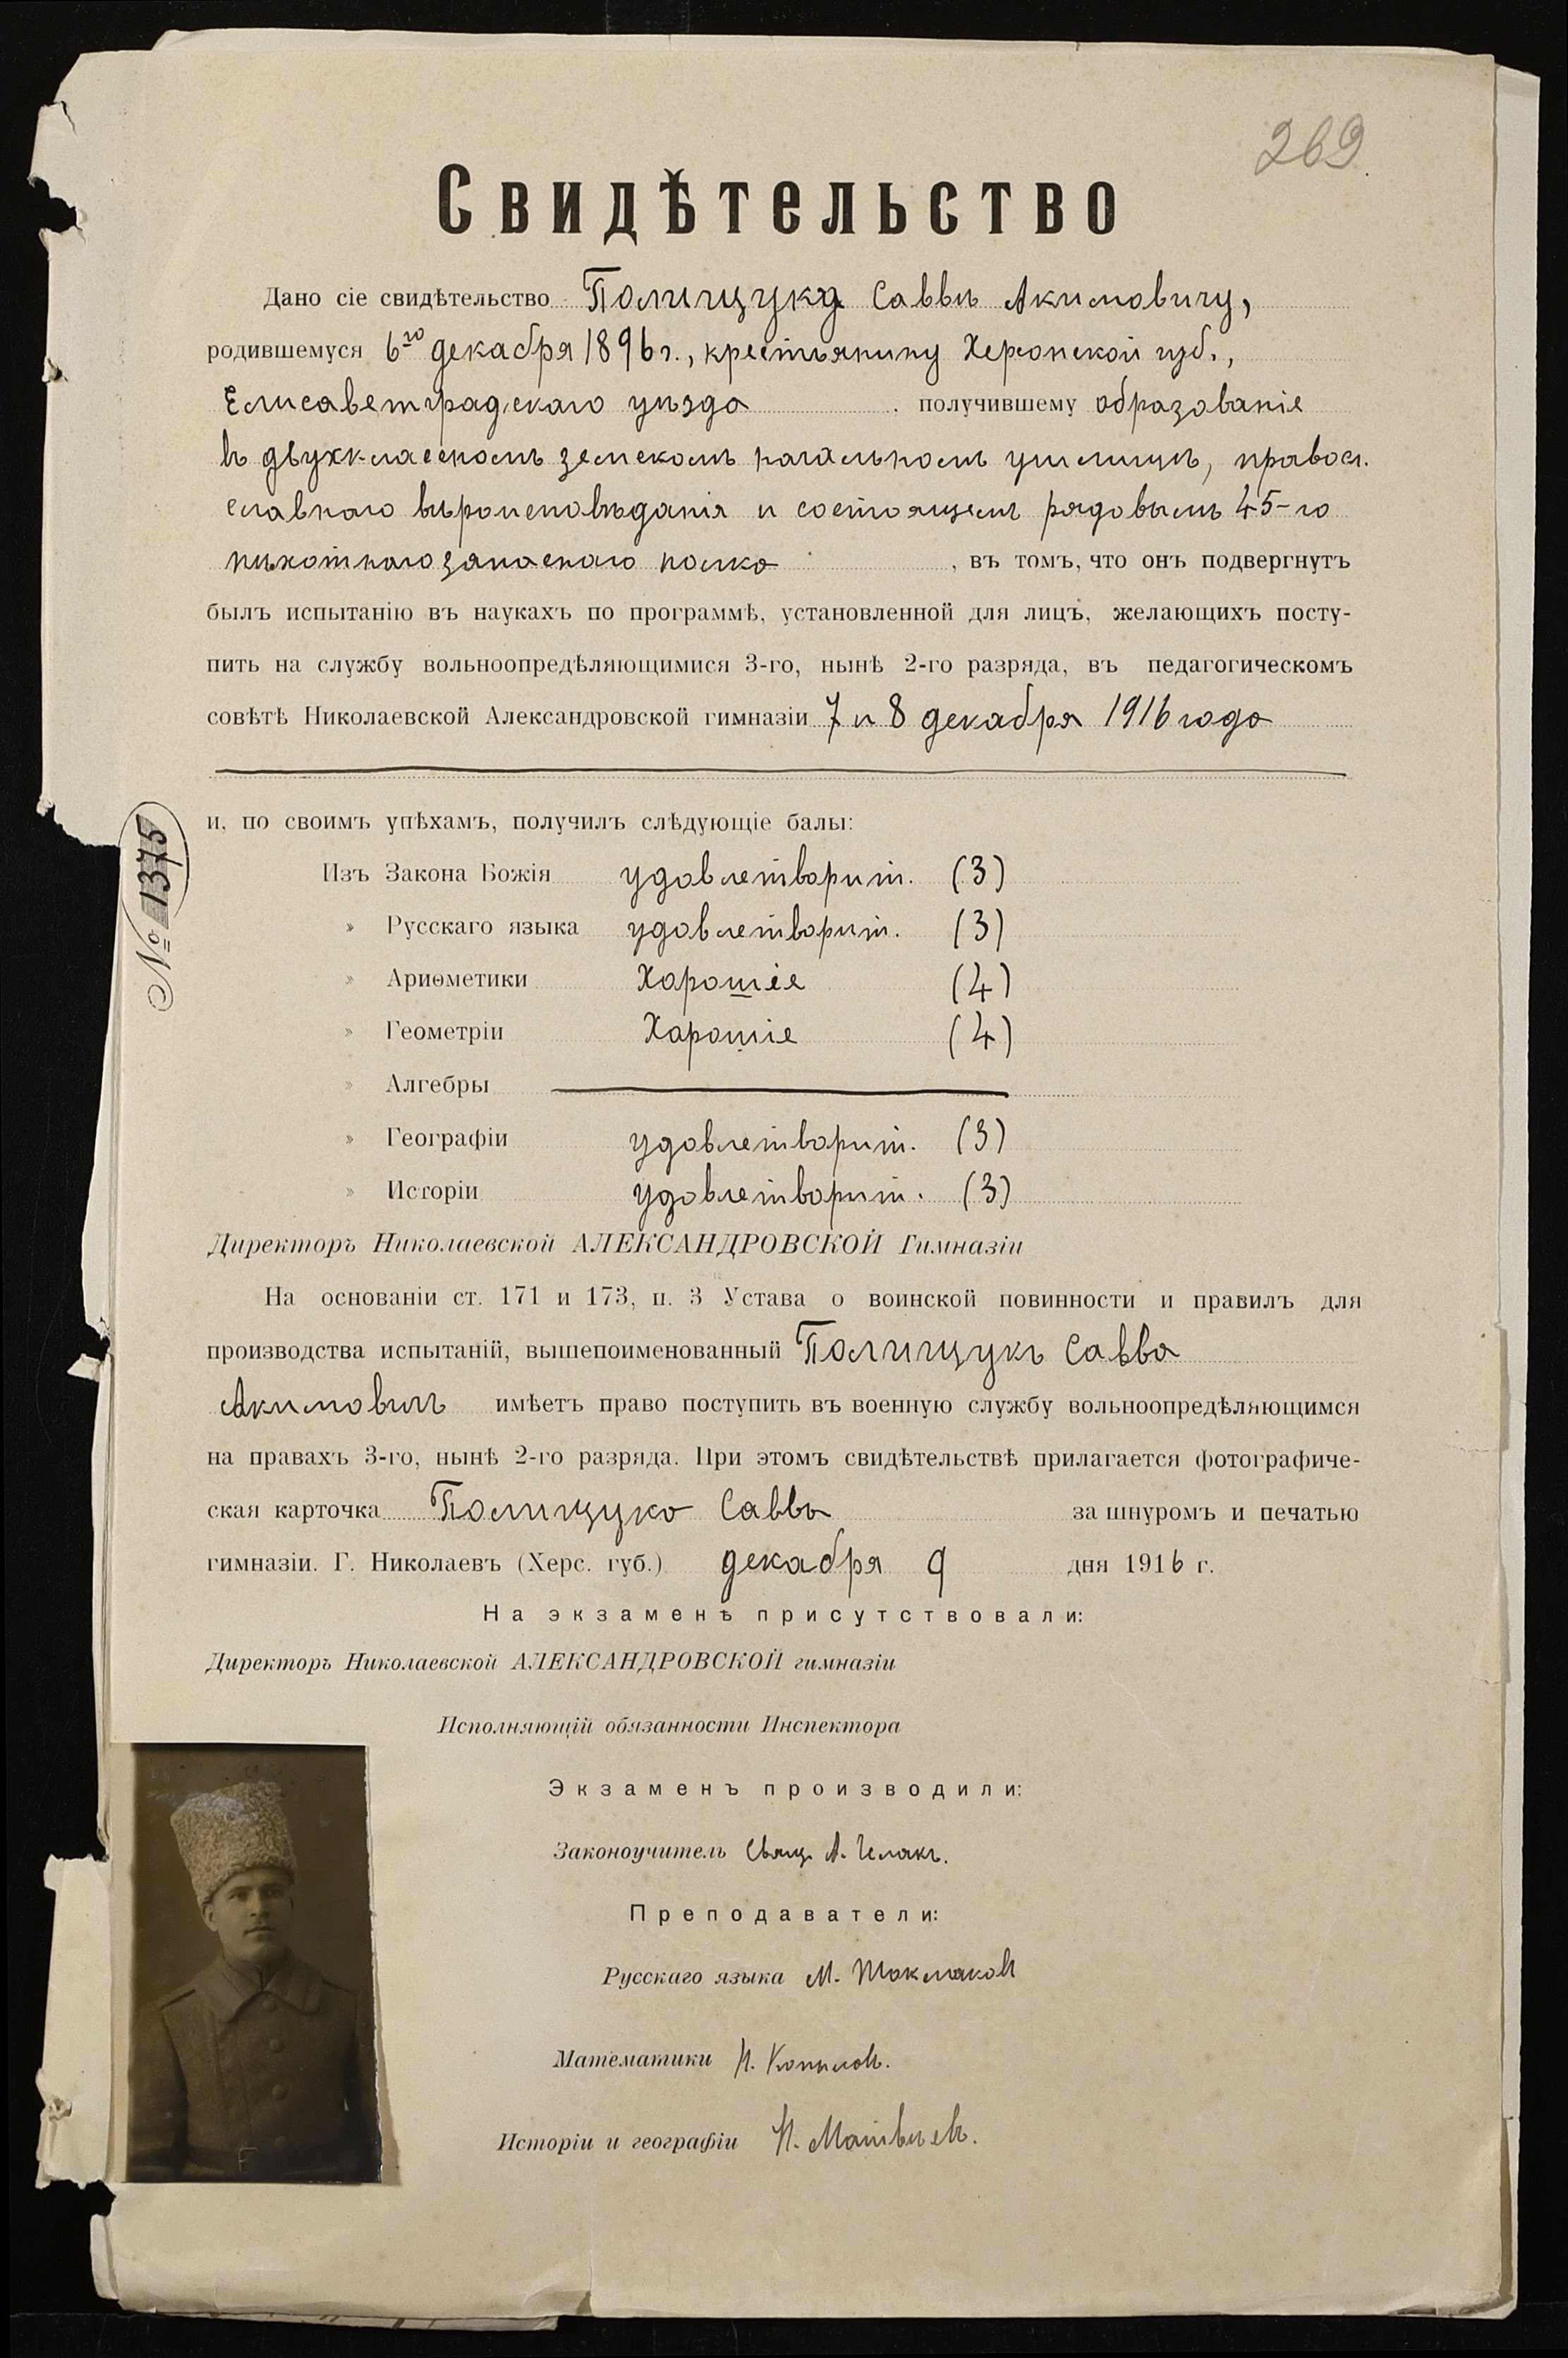 269
Свидѣтельство
Дано сіе свидѣтельство Полищуку Саввѣ Акимовичу,
родившемуся 6го декабря 1896 г., крестьянину Херсонской губ.,
Елисаветградскаго уѣзда получившему образованіе
въ двухклассномъ земскомъ начальномъ училищѣ, православнаго
вѣроисповѣданія и состоящему рядовымъ 45-го
пѣхотнаго запаснаго полка, въ томъ, что онъ подвергнутъ
былъ испытанію въ наукахъ по программѣ, установленной для лицъ, желающихъ посту-
пить на службу вольноопредѣляющимися 3-го, нынѣ 2-го разряда, въ педагогическомъ
совѣтѣ Николаевской Александровской гимназіи 7 и 8 декабря 1916 года
и, по своимъ упѣхамъ, получилъ слѣдующіе балы:
№ 1375
Изъ Закона Божія удовлетворит. (3)
» Русскаго языка удовлетворит. (3)
» Ариѳметики Хорошіе (4)
» Геометріи Хорошіе (4)
» Алгебры
» Географіи удовлетворит. (3)
» Исторіи удовлетворит. (3)
Директоръ Николаевской АЛЕКСАНДРОВСКОЙ Гимназіи
На основаніи ст. 171 и 173, п. 3 Устава о воинской повинности и правилъ для
производства испытаній, вышепоименованный Полищукъ Савва
Акимовичъ имѣетъ право поступить въ военную службу вольноопредѣляющимся
на правахъ 3-го, нынѣ 2-го разряда. При этомъ свидѣтельствѣ прилагается фотографиче-
ская карточка Полищука Саввы за шнуромъ и печатью
гимназіи. Г. Николаевъ (Херс. губ.) декабря 9 дня 1916 г.
На экзаменѣ присутствовали:
Директоръ Николаевской АЛЕКСАНДРОВСКОЙ гимназіи
Исполняющій обязанности Инспектора
Экзаменъ производили:
Законоучитель Свящ. А.
Преподаватели:
Русскаго языка М. Токмаковъ
Математики Н. Копыловъ.
Исторіи и географіи Н. Матвѣевъ.